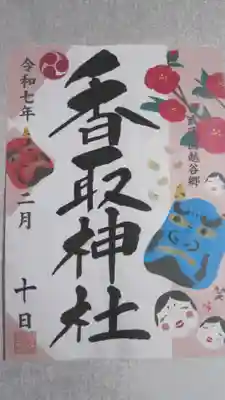 越谷郷
香取神社
令和七年
二月
十日